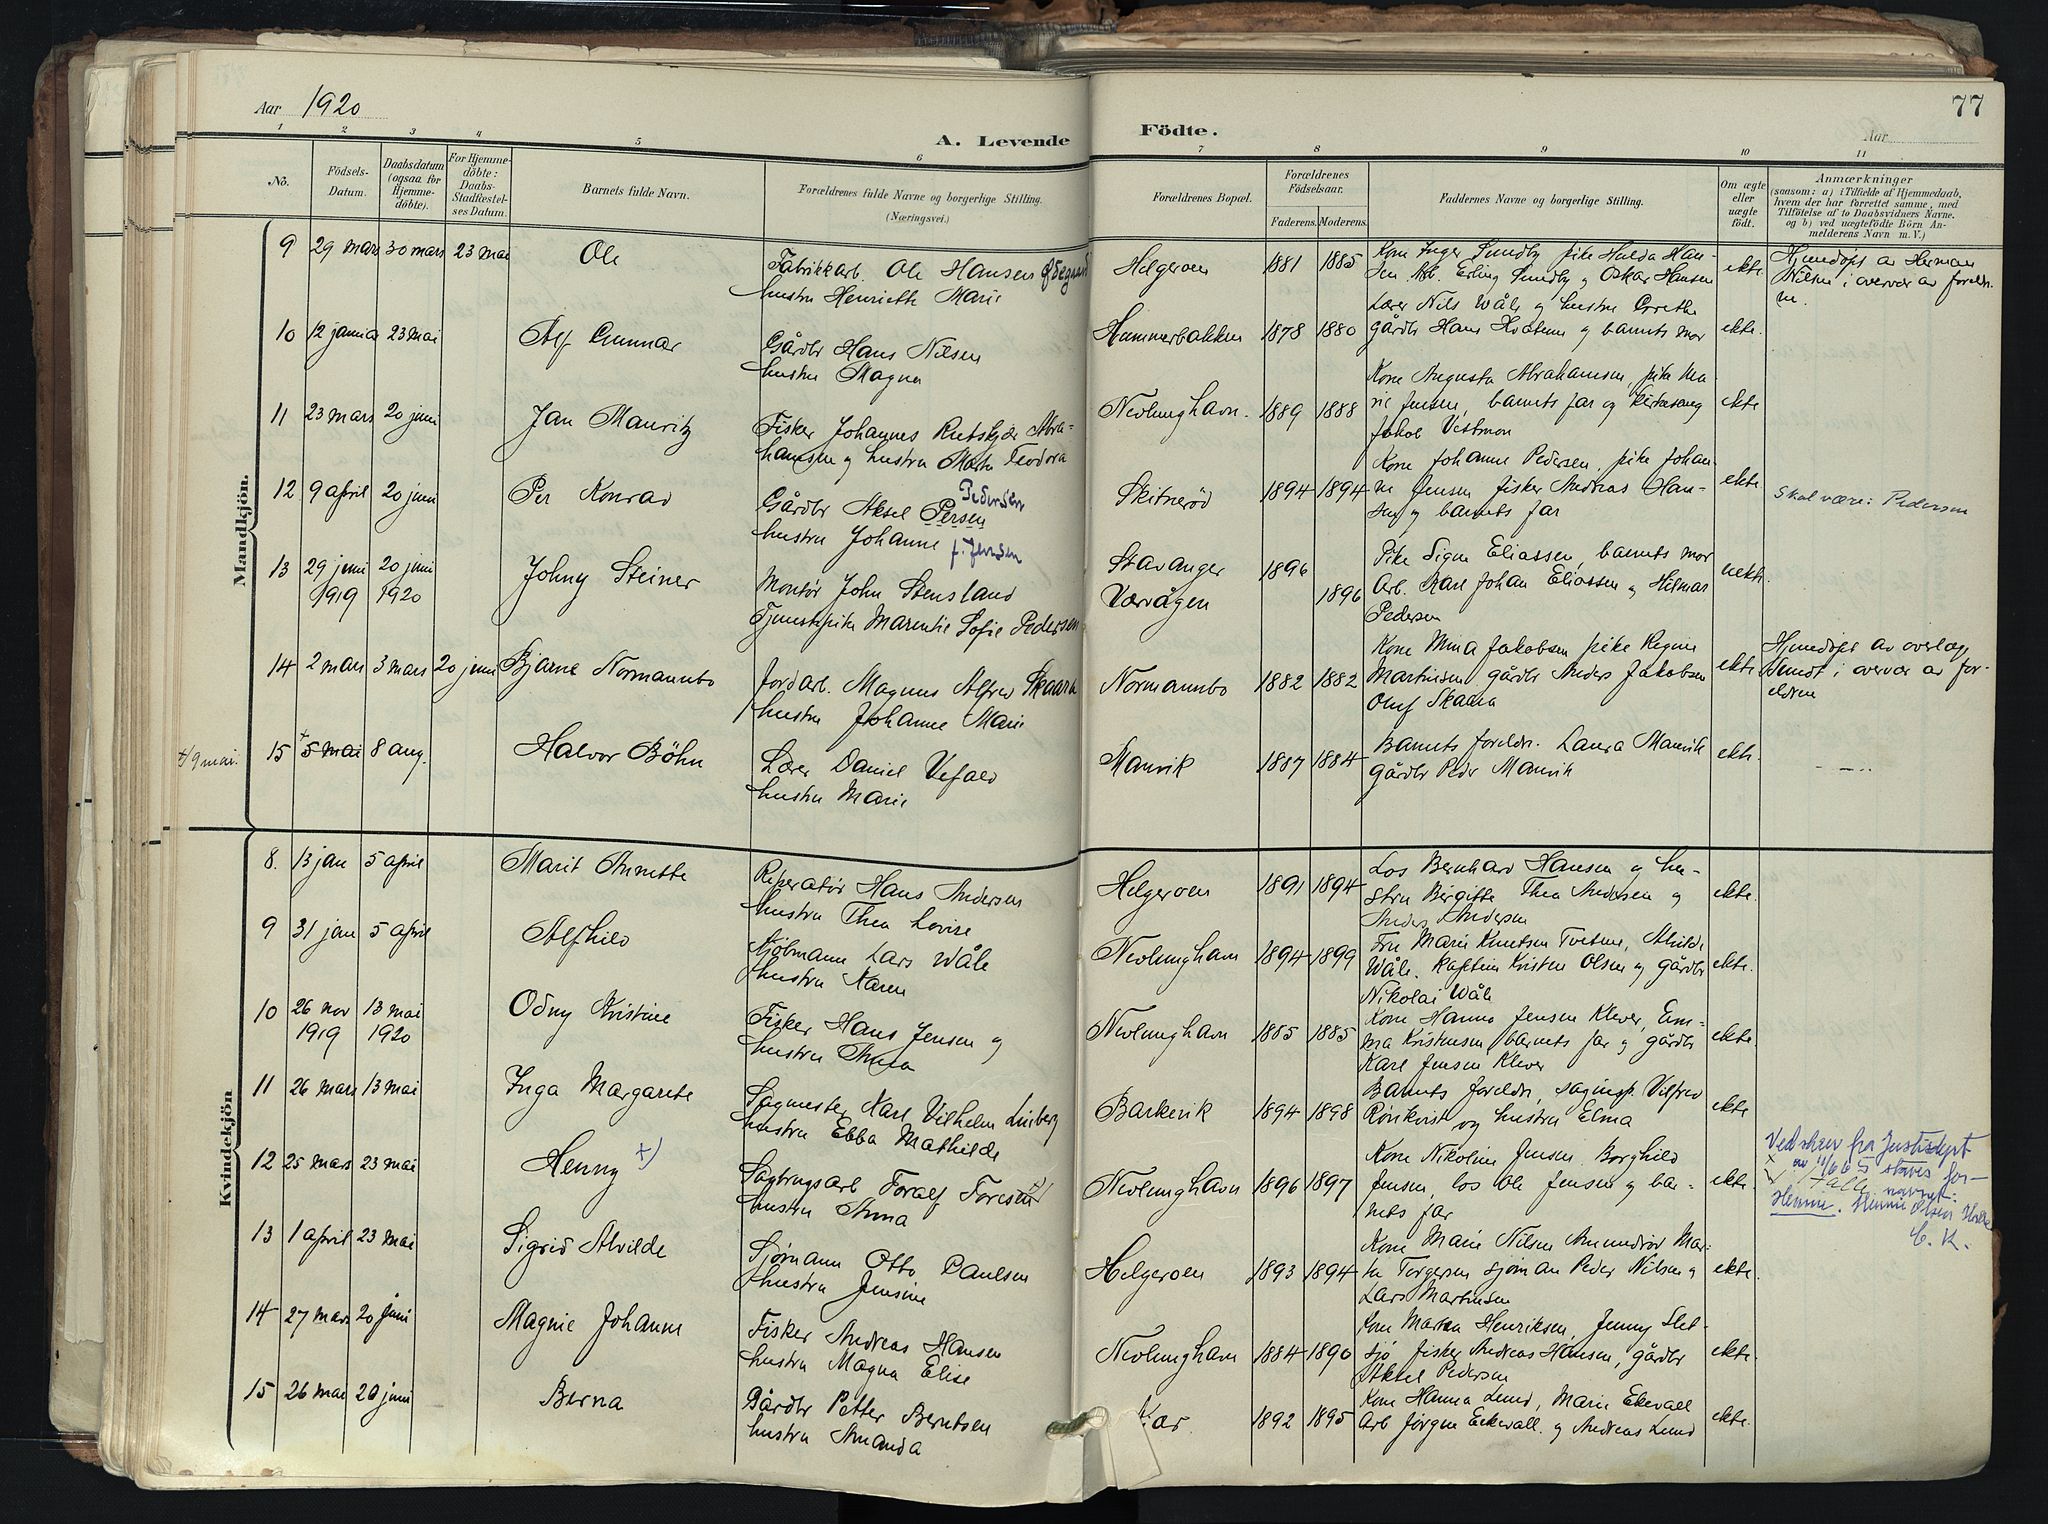 Aar 1920
A. Levende
Födte.
77
Aar
1 2 3 4 5 6 7 8 9 10 11
No.
Födsels-
Datum.
Daabsdatum
(ogsaa for
Hjemme-
döbte).
For Hjemme-
döbte:
Daabs-
Stadfæstel-
ses Datum.
Barnets fulde Navn.
Forældrenes fulde Navne og borgerlige Stilling.
(Næringsvei.)
Forældrenes Bopæl.
Forældrenes
Födselsaar.
Faderens. Moderens.
Faddernes Navne og borgerlige Stilling.
Om ægte
eller
uægte
födt.
Anmærkninger
(saasom: a) i Tilfælde af Hjemmedaab,
hvem der har forrettet samme, med
Tilföielse af to Daabsvidners Navne,
og b) ved uægtefödte Börn An-
melderens Navn m. V.)
Mandkjön.
9 29 mars 30 mars 23 mai Ole
Fabrikkarb. Ole Hansen Ødegaard
hustru Henriette Marie
Helgeroen 1881 1885
Kone Inger Sundby pike Hulda Han-
sen Arb. Erling Sundby og Oskar Hansen
ekte
Hjemdøpt av Herman
Nilsen i overvær av foreldr.
ne.
10 12 januar 23 mai Alf Gunnar
Gårdbr Hans Nilsen
hustru Magna
Hummerbakken 1878 1880
Lærer Nils Wåle og hustru Grethe
gårdbr Hans Hvåtum og barnets mor
ekte.
11 23 mars 20 juni Jan Mauritz
Fisker Johannes Rutskjær Abra-
hamsen og hustru Marta Teodora
Nevlunghavn. 1889 1888
Kone Augusta Abrahamsen, pike Ma-
rie Jensen, barnets far og
Jakob Vestmon
ekte
12 9 april 20 juni Per Konrad
Gårdbr Aksel Persen Pedersen
hustru Johanne f. Jensen
Skitnerød 1894 1894
Kone Johanne Pedersen, pike Johan-
ne Jensen fisker Andreas Han-
sen og barnets far
ekte
Skal være: Pedersen
13 29 juni 1919 20 juni 1920 Johny Steiner
Montør John Stensland
Tjenestepike Marentie Sofie Pedersen
Stavanger 1896
Værvågen 1896
Pike Signe Eliassen, barnets mor
Arb. Karl Johan Eliassen og Hilmar
Pedersen
uekte.
14 2 mars 3 mars 20 juni Bjarne Normannbo
Jordarb. Magnus Alfred Skaara
hustru Johanne Marie
Normannbo 1882 1882
Kone Mina Jakobsen pike Regine
Martinsen gårdbr Anders Jakobsen
Oluf Skaara
ekte
Hjemdøpt av overlæge
i overvær av for-
eldrene
+/9 mai.
15 +5 mai 8 aug. Halvor Böhn
Lærer Daniel Vefald
hustru Marie
Manvik 1887 1884
Barnets foreldr. Laura Manvik
gårdbr Peder Manvik
ekte.
Kvindekjön
8. 13 jan 5 april Marit Annette
Reperatør Hans Andersen
hustru Thea Lovise
Helgeroen 1891 1894
Los Bernhard Hansen og hu-
stru Birgitte Thea Andersen og
Anders Andersen
ekte.
9 31 jan 5 april Alfhild
Sjömann Lars Wåle
hustru Karen
Nevlunghavn 1894 1899
Fru Marie Knutsen Tvetene, Alvilde
Wåle. Kaptein Kristen Olsen og gårdbr
Nikolai Wåle
ekte.
10 26 nov 1919 13 mai 1920 Odny Kristine
Fisker Hans Jensen og
hustru Anna
Nevlunghavn 1885 1885
Kone Hanna Jensen Klever, Em-
ma Kristensen, barnets far og gårdbr
Karl Jensen Klever
ekte.
11 26 mars 13 mai Inga Margarete
Sagmester Karl Vilhelm Linberg
hustru Ebba Mathilde
Barkevik 1894 1898
Barnets foreldre, saginsp. Vilfred
Rönkvist og hustru Elma
ekte
12 25 mars 23 mai Henny +)
Sagbrugsarb Toralf Toresen +)
hustru Anna
Nevlunghavn 1896 1897
Kone Nikoline Jensen Borghild
Jensen, los Ole Jensen og bar-
nets far
ekte.
Ved skriv fra Justisdept
av 11/6 65 staves for-
navnet:
Hennie. Hennie Olsen
C. K.
13 1 april 23 mai Sigrid Alvilde
Sjømann Otto Paulsen
hustru Jensine
Helgeroen 1893 1894
Kone Marie Nilsen Amundrød Mar-
ta Torgersen sjømann Peder Nilsen og
Lars Martinsen
ekte.
14 27 mars 20 juni Magnie Johanne
Fisker Andreas Hansen
hustru Magna Elise
Nevlunghavn 1884 1890
Kone Marta Henriksen, Jenny Slet-
sjø fisker Andreas Hansen, gårdbr
Aksel Pedersen
ekte.
15 26 mai 20 juni Berna
Gårdbr Petter Berntsen
hustru Amanda
Kær. 1892 1895
Kone Hanna Lund, Marie Ekevall
Arb Jørgen Eckevall. og Andreas Lund
ekte.